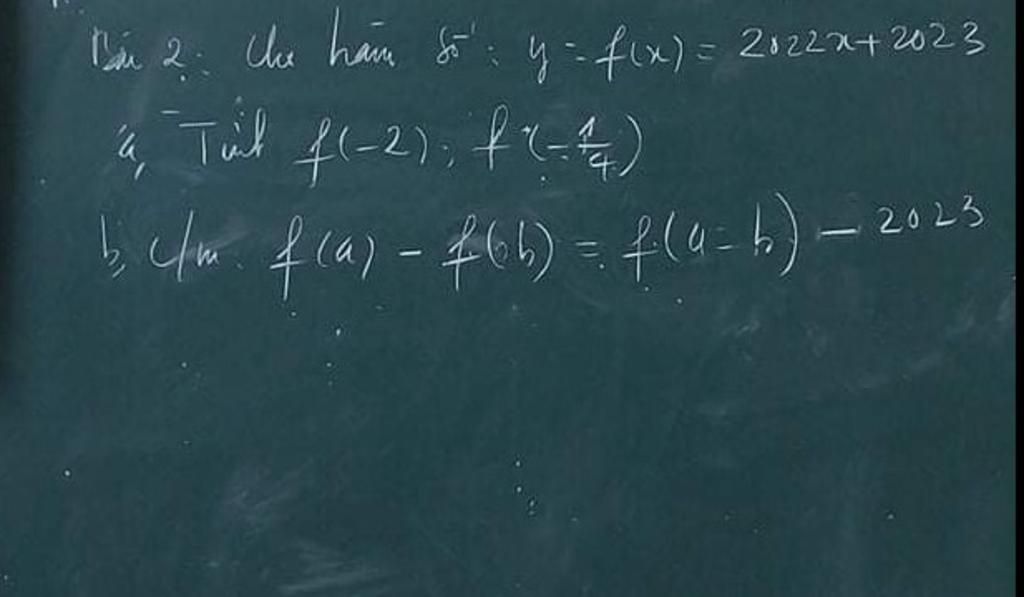 Bài 2: Cho hàm số: y = f(x) = 2022x + 2023
a, Tính f(-2); f(-1/4)
b, c/m: f(a) - f(b) = f(a-b) - 2023